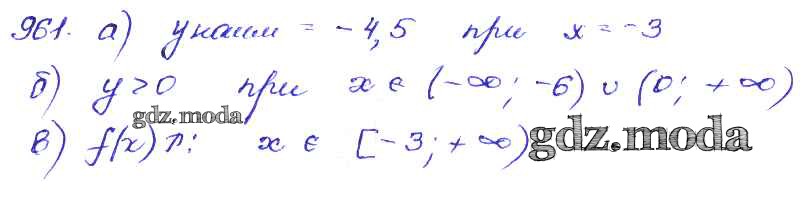 961. а) y наим = -4,5 при x = -3
б) y > 0 при x ∈ (-∞; -6) ∪ (0; +∞)
gdz.moda
в) f(x) ↑: x ∈ [-3; +∞) gdz.moda